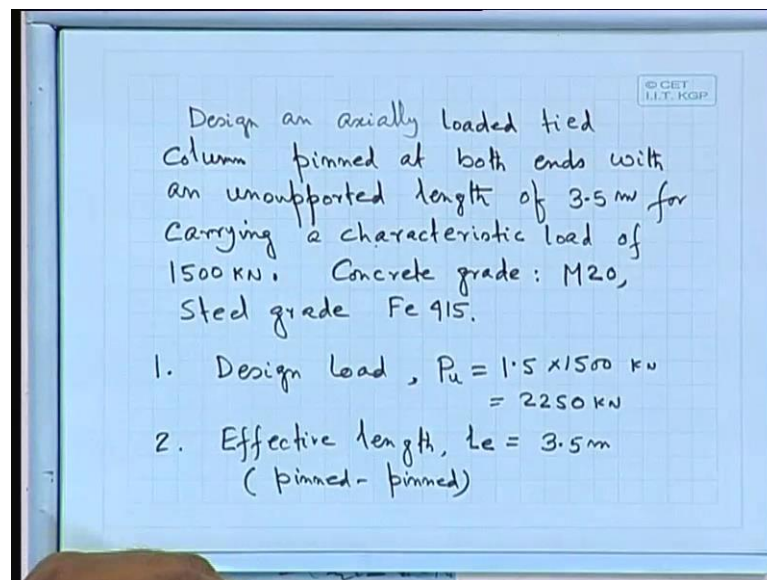 © CET
I.I.T. KGP
Design an axially loaded tied
Column pinned at both ends with
an unsupported length of 3.5 m for
Carrying a characteristic load of
1500 KN. Concrete grade: M20,
Steel grade Fe 415.
1. Design load, Pu = 1.5 x 1500 KN
= 2250 KN
2. Effective length, le = 3.5m
(pinned-pinned)